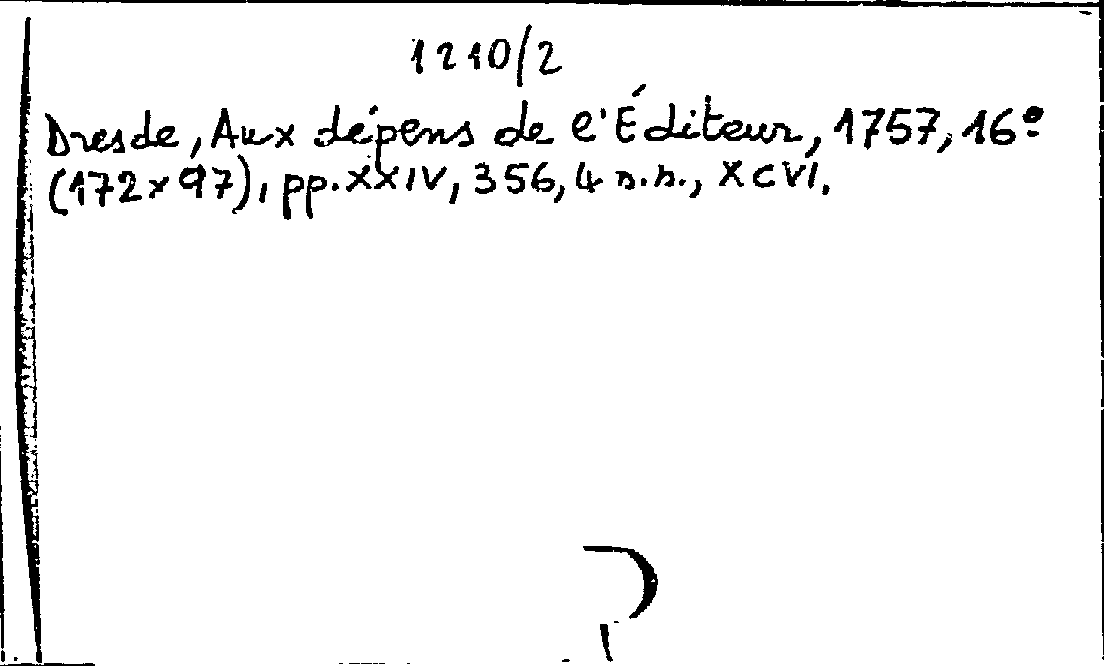 1210/2
Dresde, Aux dépens de l'Éditeur, 1757, 16º
(172x97), pp. XXIV, 356, 4 n.n., XCVI.